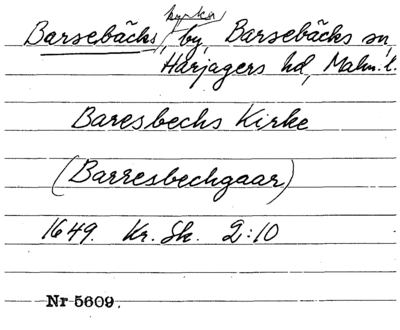 kyrka
Barsebäcks, by, Barsebäcks sn,
Harjagers hd, Malm. l.
Baresbechs Kirke
(Barresbechgaar)
1649. Kr. Sk. 2:10
Nr 5609.